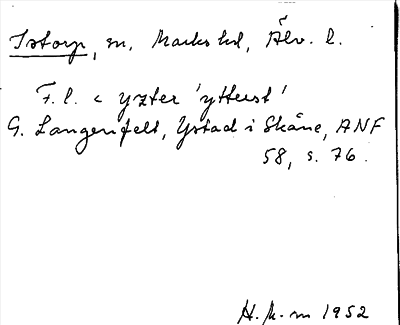 Istorp, sn, Marks hd, Älv. l.
F. l. < yzter 'ytterst'
G. Langenfelt, Ystad i Skåne, ANF
58, s. 76.
H. K-m 1952